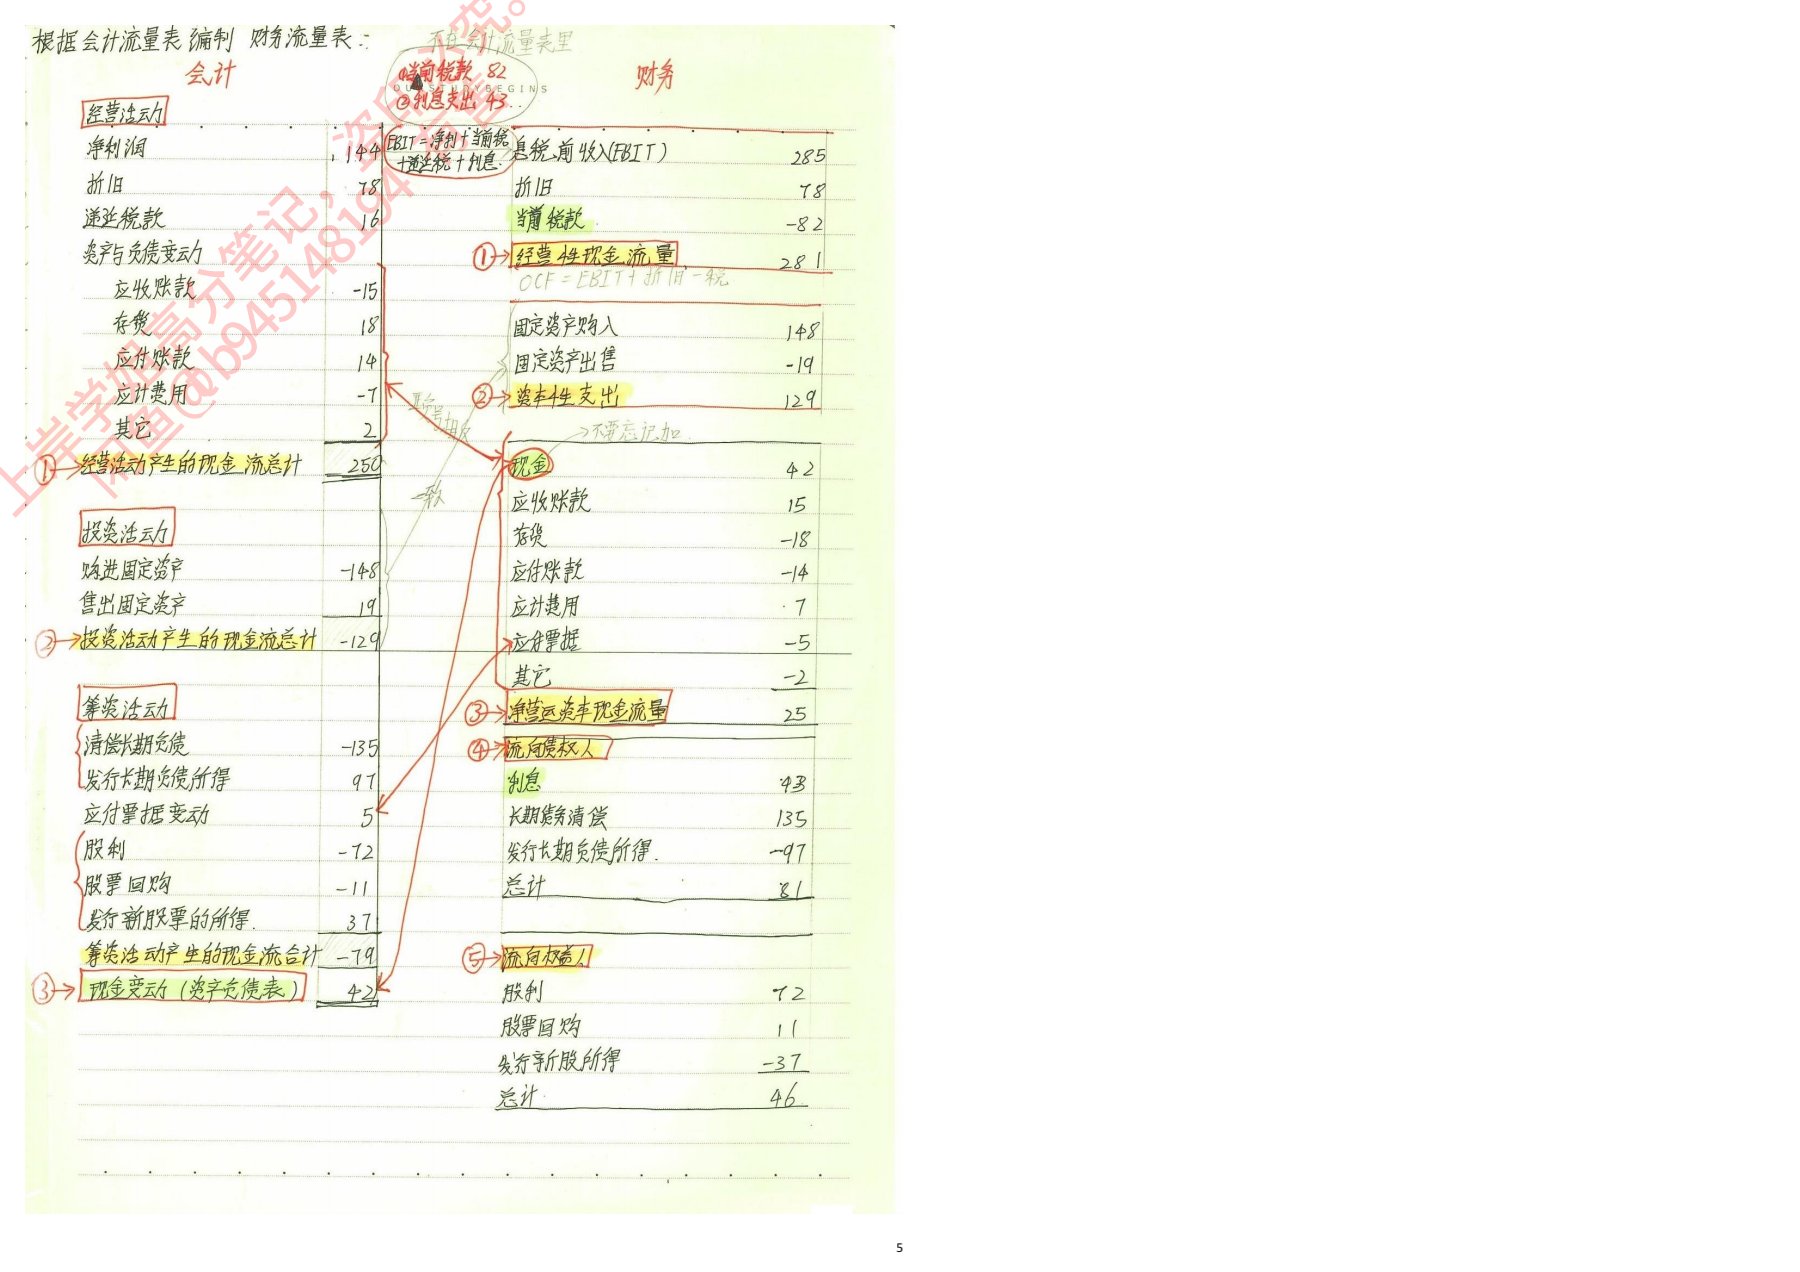 根据会计流量表编制 财务流量表：
不在会计流量表里
会计
①当前税款 82
OUR STUDY BEGINS
②利息支出 43
财务
经营活动
净利润 144
折旧 78
递延税款 16
资产与负债变动
应收账款 -15
存货 18
应付账款 14
应计费用 -7
其它 2
①→经营活动产生的现金流总计 250
投资活动
购进固定资产 -148
售出固定资产 19
②→投资活动产生的现金流总计 -129
筹资活动
清偿长期负债 -135
发行长期负债所得 97
应付票据变动 5
股利 -72
股票回购 -11
发行新股票的所得 37
筹资活动产生的现金流合计 -79
③→现金变动(资产负债表) 42
EBIT=净利+当前税
+递延税+利息
正负号相反
一致
息税前收入(EBIT) 285
折旧 78
当前税款 -82
①→经营性现金流量 281
OCF=EBIT+折旧-税
固定资产购入 148
固定资产出售 -19
②→资本性支出 129
→不要忘记加
现金 42
应收账款 15
存货 -18
应付账款 -14
应计费用 7
应付票据 -5
其它 -2
③→净营运资本现金流量 25
④→流向债权人
利息 43
长期债务清偿 135
发行长期负债所得 -97
总计 81
⑤→流向权益人
股利 72
股票回购 11
发行新股所得 -37
总计 46
上岸学姐高分笔记，盗
究。
闲鱼@b945148194
有售
5